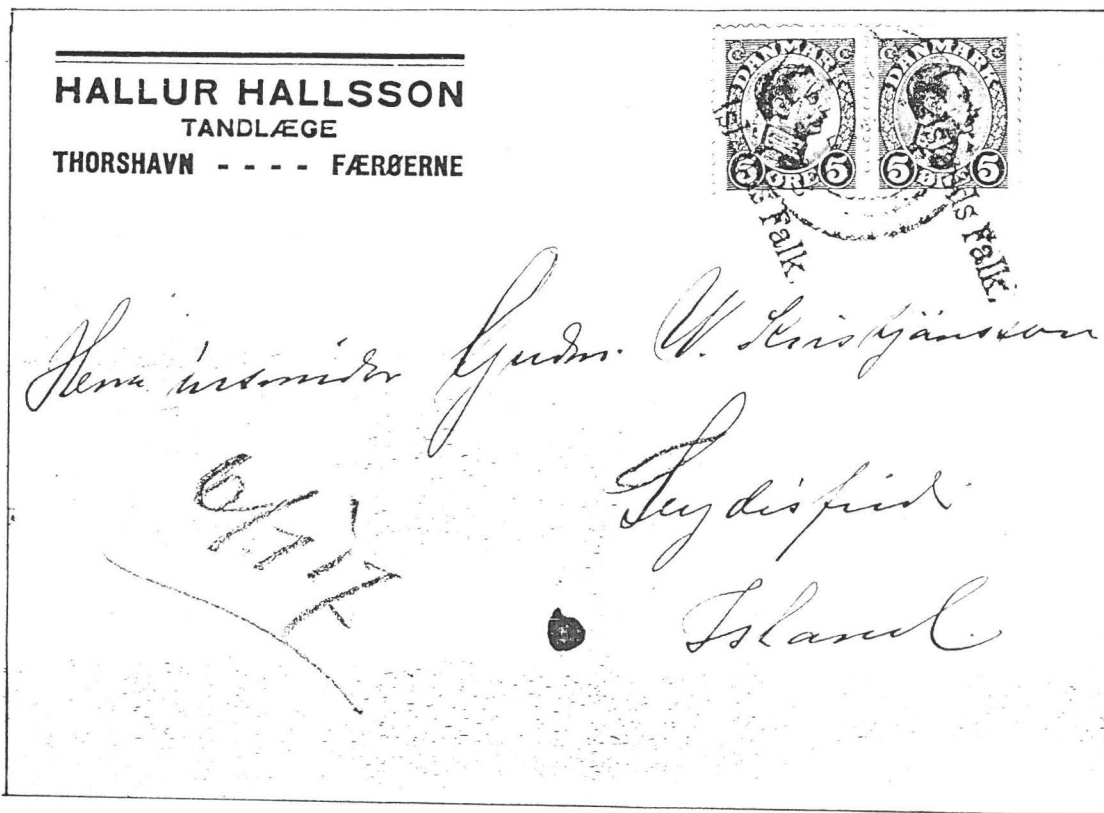 HALLUR HALLSSON
TANDLÆGE
THORSHAVN - - - - FÆRØERNE
DANMARK DANMARK
5 ØRE 5 5 ØRE 5
Falk. Falk.
Herra úrsmiður Guðm. W. Kristjánsson
Seydisfird
Island.
6/7 17